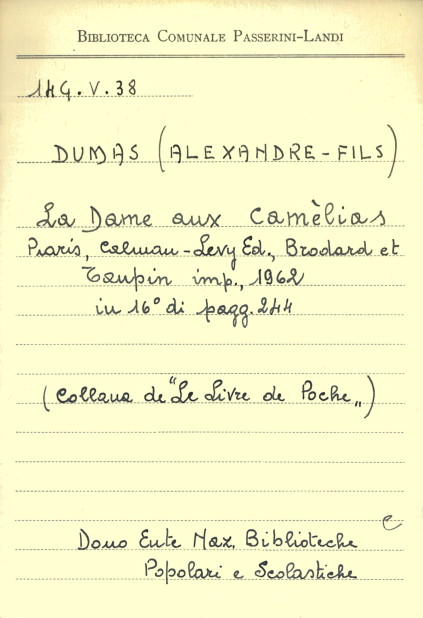 BIBLIOTECA COMUNALE PASSERINI-LANDI
14G.V.38
DUMAS (ALEXANDRE-FILS)
La Dame aux Camèlias
Paris, Calman-Levy Ed., Brodard et
Taupin imp., 1962
in 16° di pagg. 244
(Collana de "Le Livre de Poche„)
e
Dono Ente Naz. Biblioteche
Popolari e Scolastiche